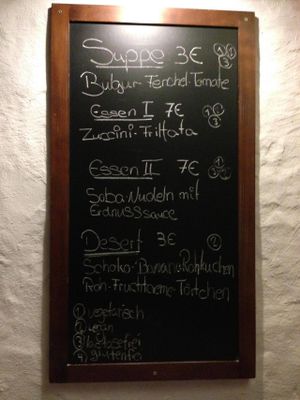 Suppe 3€
Bulgur-Fenchel-Tomate
Essen I 7€
Zuccini-Frittata
Essen II 7€
Soba-Nudeln mit
Erdnusssauce
Desert 3€ ②
Schoko-Banane-Rohkuchen
Roh-Fruchtcreme-Törtchen
① vegetarisch
② vegan
③ laktosefrei
④ glutenfrei